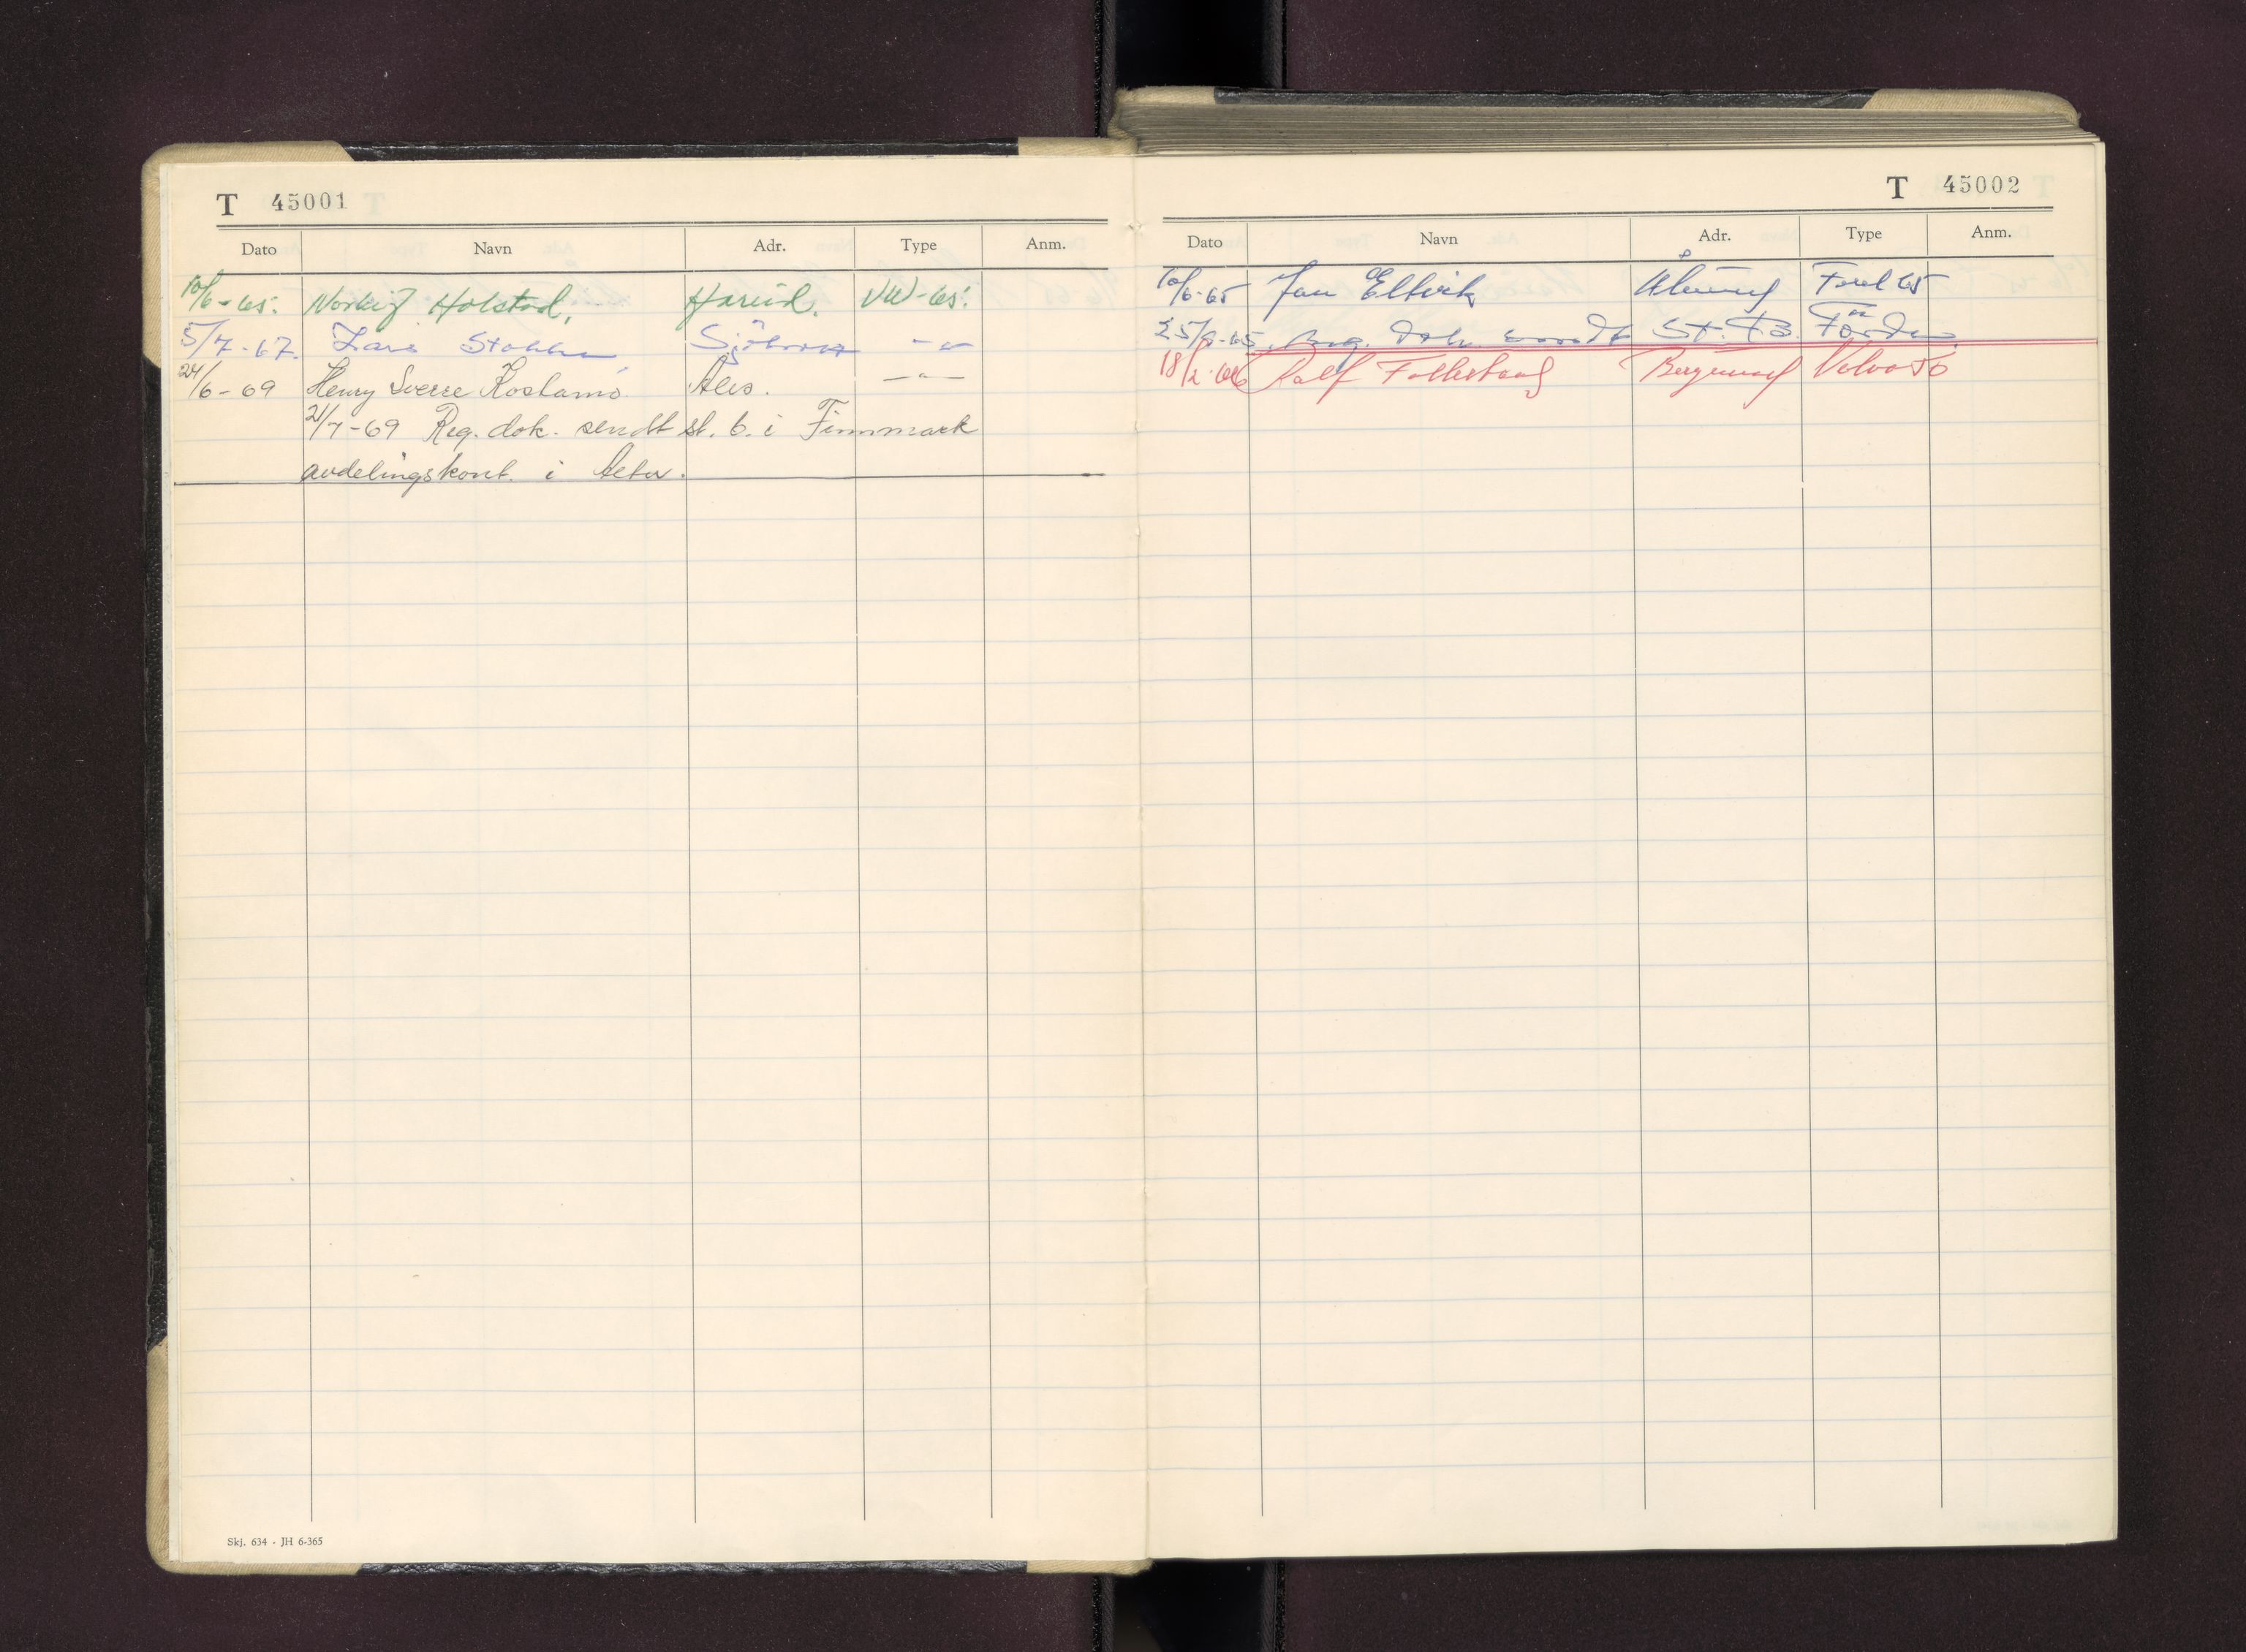 T 45001
Dato Navn Adr. Type Anm.
10/6-65. Holstad, Hareid. VW-65.
5/7-67. Lars
24/6-69 Henry Sverre Ales. —"—
21/7-69 Reg. dok. sendt st. b. i Finnmark
avdelingskont. i
Skj. 634 - JH 6-365
T 45002
Dato Navn Adr. Type Anm.
10/6-65 Jan Ålesund Ford 65
25/8-65. Reg. dok. sendt St. B.
18/2-66 Rolf Follestad Volvo 56